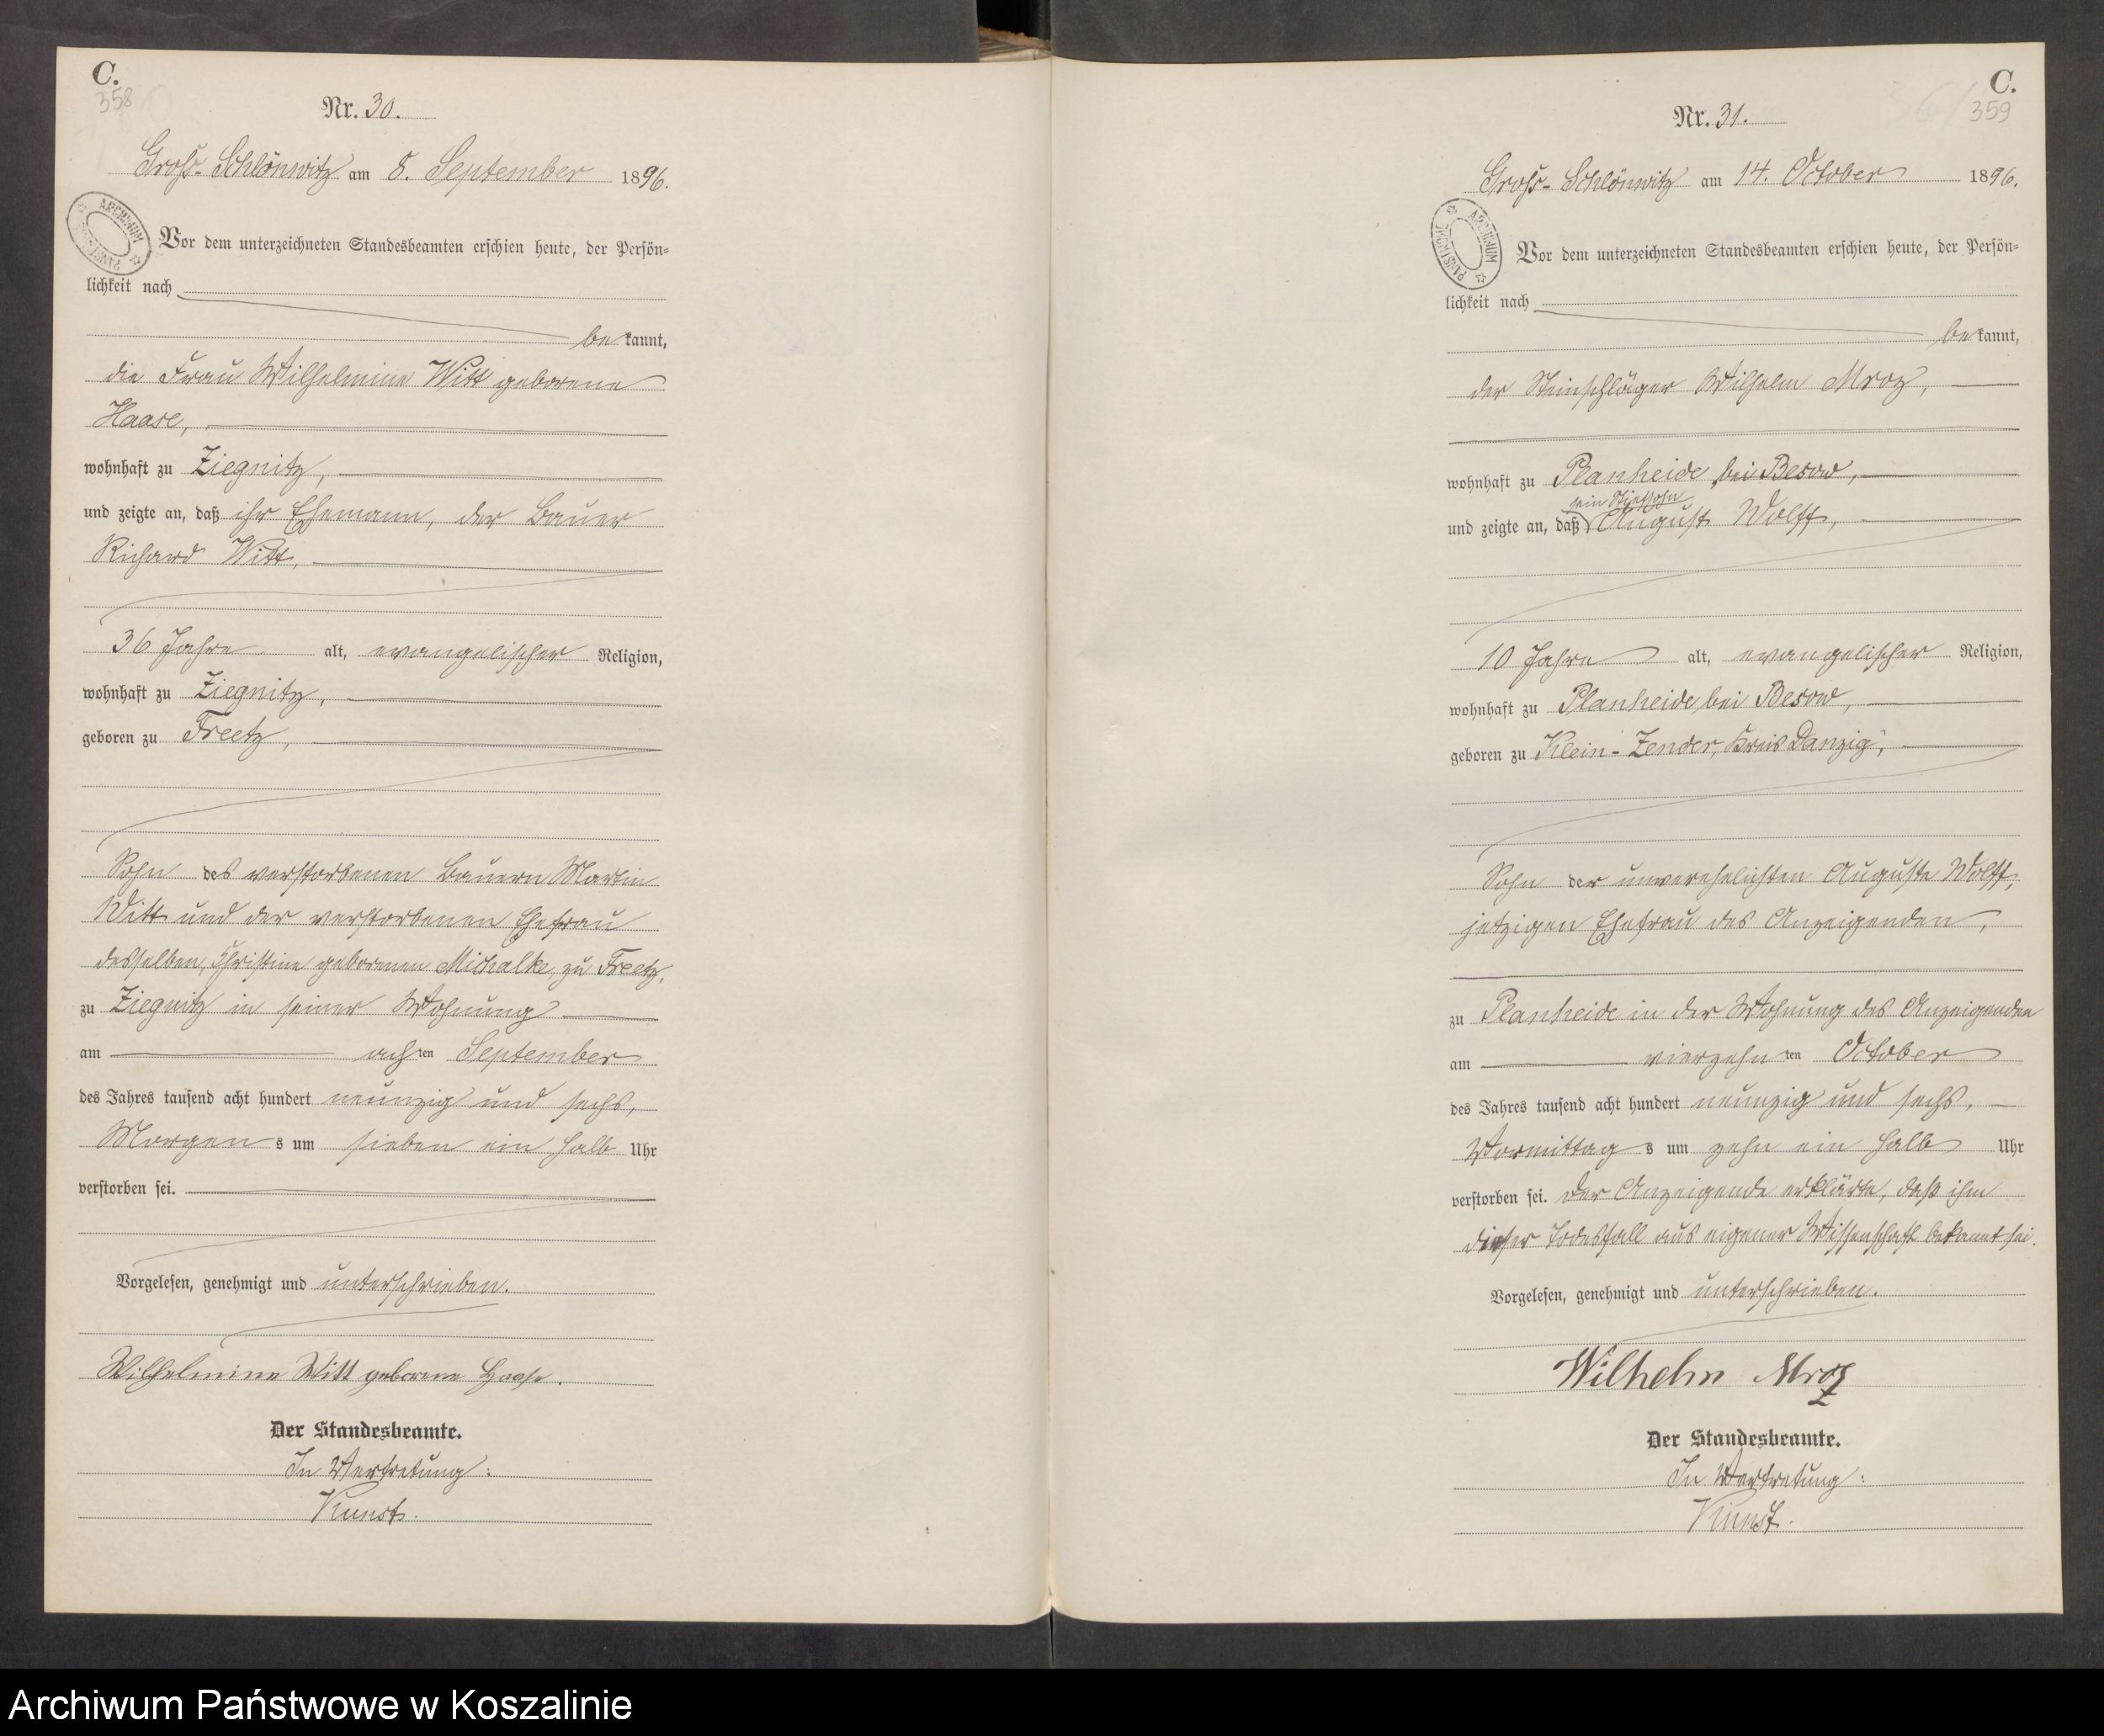 C.
358
Nr. 30.
Groß-Schlönwitz am 8. September 1896.
Vor dem unterzeichneten Standesbeamten erschien heute, der Persön=
lichkeit nach
bekannt,
die Frau Wilhelmine Witt geborene
Haase,
wohnhaft zu Ziegnitz,
und zeigte an, daß ihr Ehemann, der Bauer
Richard Witt,
36 Jahre alt, evangelischer Religion,
wohnhaft zu Ziegnitz,
geboren zu Freetz,
Sohn des verstorbenen Bauern Martin
Witt und der verstorbenen Ehefrau
desselben, Christine geborenen Michalke, zu Freetz,
zu Ziegnitz in seiner Wohnung
am achten September
des Jahres tausend acht hundert neunzig und sechs,
Morgens um sieben ein halb Uhr
verstorben sei.
Vorgelesen, genehmigt und unterschrieben.
Wilhelmine Witt geborene Haase.
Der Standesbeamte.
In Vertretung:
Kunst.
ARCHIWUM PAŃSTWOWE
C.
359
Nr. 31.
Groß-Schlönwitz am 14. October 1896.
Vor dem unterzeichneten Standesbeamten erschien heute, der Persön=
lichkeit nach
bekannt,
der Steinschläger Wilhelm Mroz,
wohnhaft zu Planheide bei Besow,
sein Stiefsohn
und zeigte an, daß August Wolff,
10 Jahre alt, evangelischer Religion,
wohnhaft zu Planheide bei Besow,
geboren zu Klein-Zender, Kreis Danzig,
Sohn der unverehelichten Auguste Wolff,
jetzigen Ehefrau des Anzeigenden,
zu Planheide in der Wohnung des Anzeigenden
am vierzehnten October
des Jahres tausend acht hundert neunzig und sechs,
Vormittags um zehn ein halb Uhr
verstorben sei. Der Anzeigende erklärte, daß ihm
dieser Todesfall aus eigener Wissenschaft bekannt sei.
Vorgelesen, genehmigt und unterschrieben.
Wilhelm Mroz
Der Standesbeamte.
In Vertretung:
Kunst.
ARCHIWUM PAŃSTWOWE
Archiwum Państwowe w Koszalinie